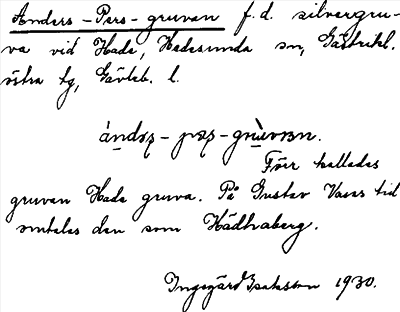 Anders-Pers-gruvan f.d. silvergru-
va vid Hade, Hedesunda sn, Gästrikl.
östra tg, Gävleb. l.
Förr kallades
gruvan Hade gruva. På Gustav Vasas tid
omtalas den som Hädhvaberg.
Ingegärd Isaksson 1930.